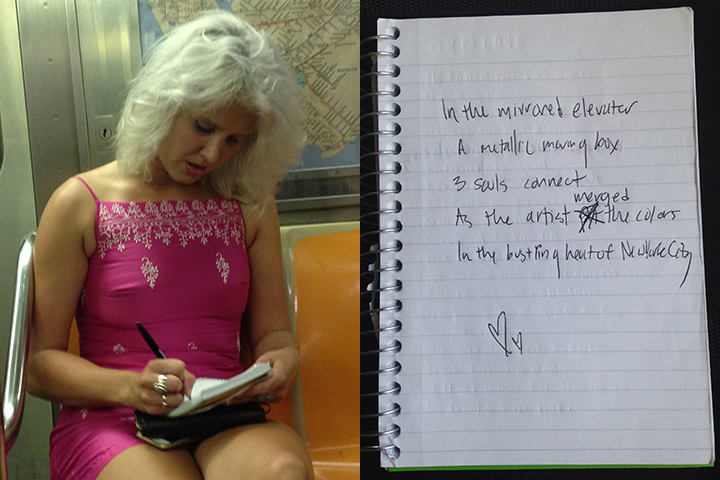 In the mirrored elevator
A metallic moving box
3 souls connect
As the artist merged the colors
In the bustling heat of New York City